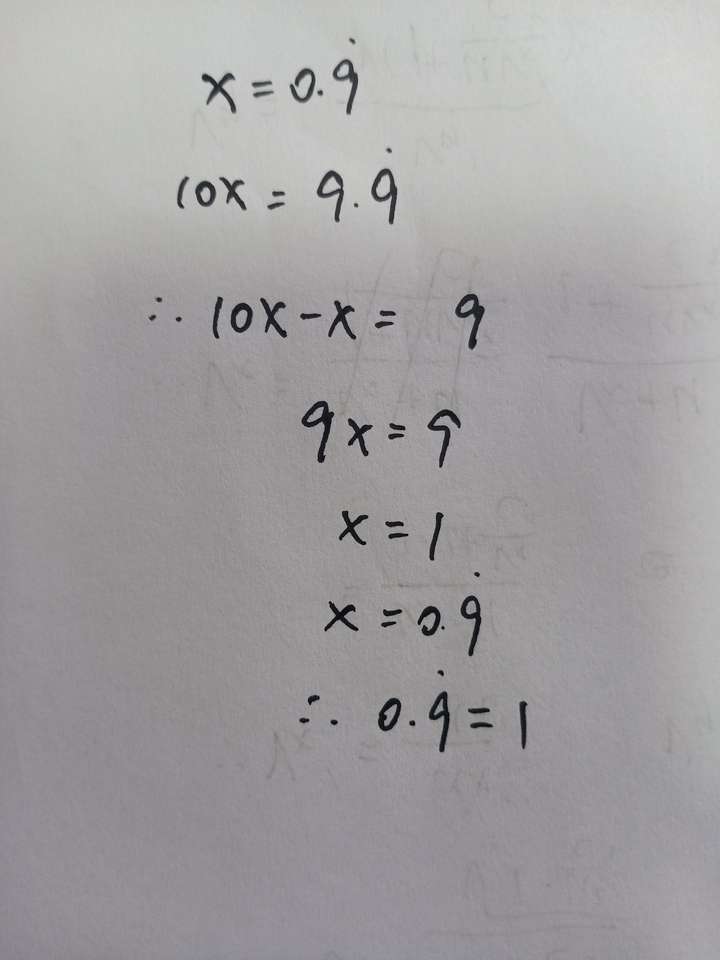 x = 0.9̇
10x = 9.9̇
∴ 10x - x = 9
9x = 9
x = 1
x = 0.9̇
∴ 0.9̇ = 1